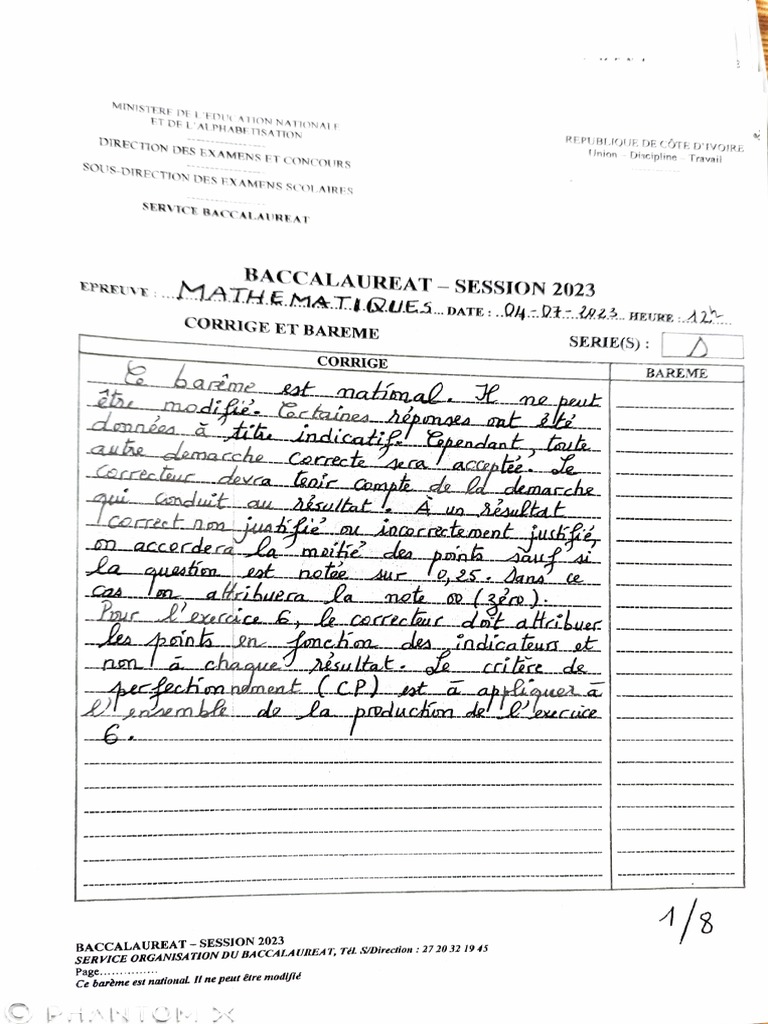 MINISTERE DE L'EDUCATION NATIONALE
ET DE L'ALPHABETISATION
DIRECTION DES EXAMENS ET CONCOURS
SOUS-DIRECTION DES EXAMENS SCOLAIRES
SERVICE BACCALAUREAT
REPUBLIQUE DE CÔTE D'IVOIRE
Union – Discipline – Travail
BACCALAUREAT – SESSION 2023
EPREUVE : MATHEMATIQUES DATE : 04-07-2023 HEURE : 12h
CORRIGE ET BAREME SERIE(S) : D
CORRIGE BAREME
Ce barême est national. Il ne peut
être modifié. Certaines réponses ont été
données à titre indicatif. Cependant, toute
autre demarche correcte sera acceptée. Le
correcteur devra tenir compte de la demarche
qui conduit au résultat. À un résultat
correct non justifié ou incorrectement justifié,
on accordera la moitié des points sauf si
la question est notée sur 0,25. Dans ce
cas on attribuera la note 00 (zéro).
Pour l'exercice 6, le correcteur doit attribuer
les points en fonction des indicateurs et
non à chaque résultat. Le critère de
perfectionnement (CP) est à appliquer à
l'ensemble de la production de l'exercice
6.
1/8
BACCALAUREAT – SESSION 2023
SERVICE ORGANISATION DU BACCALAUREAT, Tél. S/Direction : 27 20 32 19 45
Page...............
Ce barème est national. Il ne peut être modifié
© PHANTOM X